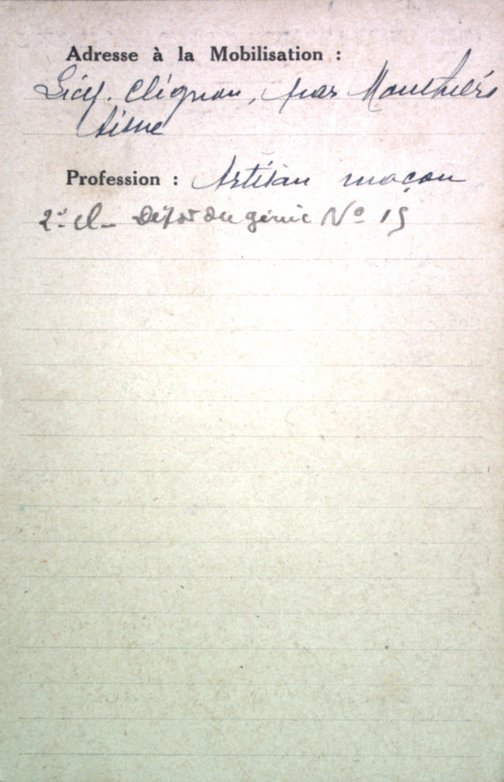 Adresse à la Mobilisation :
Licy. Clignon, par Monthiers
Aisne
Profession : Artisan maçon
2e cl - Dépot du génie No 15